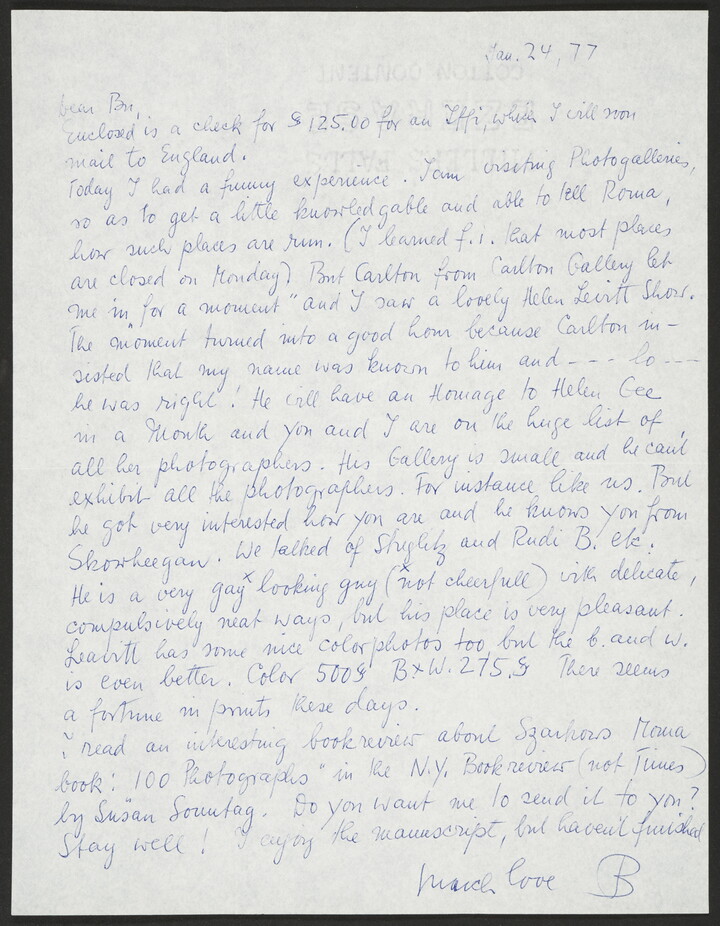 Jan. 24, 77
Dear Bn,
Enclosed is a check for $125.00 for an Iffi, which I will soon
mail to England.
Today I had a funny experience. I am visiting Photogalleries,
so as to get a little knowledgable and able to tell Roma,
how such places are run. (I learned f.i. that most places
are closed on Monday) But Carlton from Carlton Gallery let
me in for a moment" and I saw a lovely Helen Levitt Show.
The "moment turned into a good hour because Carlton in-
sisted that my name was known to him and --- lo ---
he was right! He will have an Homage to Helen Gee
in a Month and you and I are on the huge list of
all her photographers. His Gallery is small and he can't
exhibit all the photographers. For instance like us. But
he got very interested how you are and he knows you from
Skowheegan. We talked of Stieglitz and Rudi B. etc.
He is a very gay x looking guy (x not cheerfull) with delicate,
compulsively neat ways, but his place is very pleasant.
Leavitt has some nice colorphotos too, but the b. and w.
is even better. Color 500$ B+W. 275.$ There seems
a fortune in prints these days.
I read an interesting bookreview about Szarkows Moma
book: 100 Photographs" in the N.Y. Bookreview (not Times)
by Susan Sonntag. Do you want me to send it to you?
Stay well! I enjoy the manuscript, but haven't finished
much love B